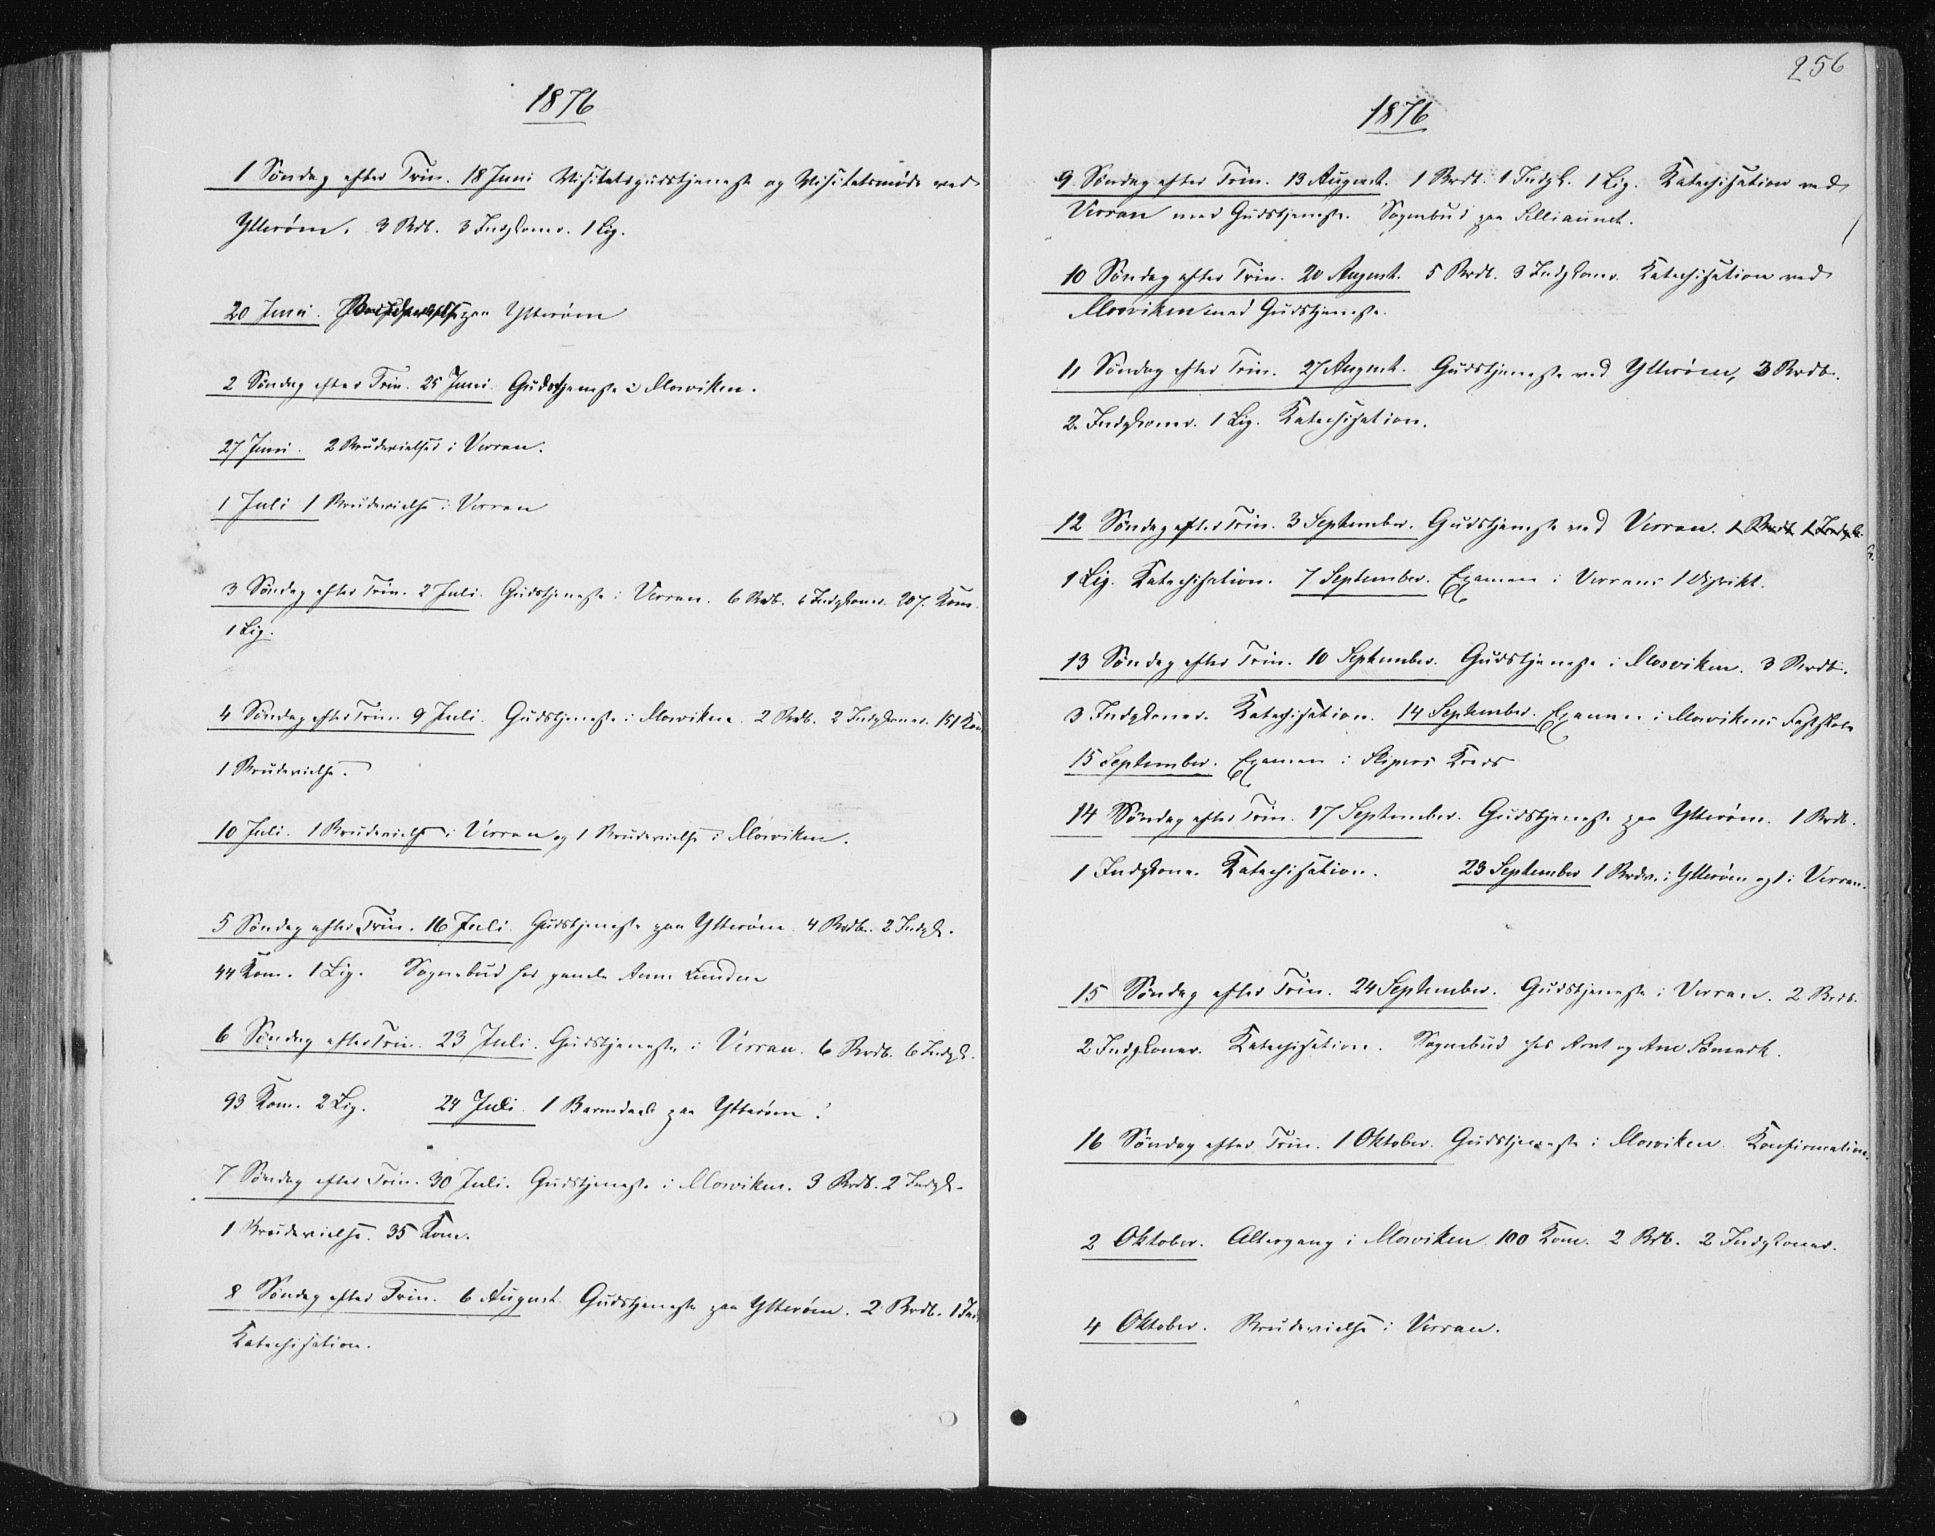 1876
1 Søndag efter Trin. 18 Juni Visitatsgudstjeneste og Visitatsmøde ved
Ytterøen. 3 Brdb. 3 Indgkoner. 1 Lig.
20 Juni. paa Ytterøen
2 Søndag efter Trin. 25 Juni. Gudstjeneste i Mosviken.
27 Juni. 2 Brudevielser i Verran.
1 Juli 1 Brudevielse i Verran
3 Søndag efter Trin. 2 Juli. Gudstjeneste i Verran. 6 Brdb. 6 Indgkoner. 207. Kom.
1 Lig.
4 Søndag efter Trin. 9 Juli. Gudstjeneste i Mosviken. 2 Brdb. 2 Indgkoner. 151 Kom
1 Brudevielse.
10 Juli. 1 Brudevielse i Verran og 1 Brudevielse i Mosviken.
5 Søndag efter Trin. 16 Juli. Gudstjeneste paa Ytterøen. 4 Brdb. 2 Indgk.
44 Kom. 1 Lig. Sognebud hos gamle Anne
6 Søndag efter Trin. 23 Juli. Gudstjeneste i Verran. 6 Brdb. 6 Indgk.
93 Kom. 2 Lig. 24 Juli. 1 Barnedaab paa Ytterøen.
7 Søndag efter Trin. 30 Juli. Gudstjeneste i Mosviken. 3 Brdb. 2 Indgk.
1 Brudevielse. 35 Kom.
8 Søndag efter Trin. 6 August. Gudstjeneste paa Ytterøen. 2 Brdb. 1 Ind
Katechisation.
256
1876
9 Søndag efter Trin. 13 August. 1 Brdb. 1 Indgk. 1 Lig. Katechisation ved
Verran med Gudstjeneste. Sognebud paa
10 Søndag efter Trin. 20 August. 5 Brdb. 3 Indgkoner. Katechisation ved
Mosviken med Gudstjeneste.
11 Søndag efter Trin. 27 August. Gudstjeneste ved Ytterøen, 3 Brdb.
2 Indgkoner. 1 Lig. Katechisation.
12 Søndag efter Trin. 3 September. Gudstjeneste ved Verran. 1 Brdb 1 Indgk.
1 Lig. Katechisation. 7 September. Examen i Verrans 1 Distrikt.
13 Søndag efter Trin. 10 September. Gudstjeneste i Mosviken. 3 Brdb.
3 Indgkoner. Katechisation. 14 September. Examen i Mosvikens Fastskole
15 September. Examen i Kreds
14 Søndag efter Trin. 17 September. Gudstjeneste paa Ytterøen. 1 Brdb.
1 Indgkone. Katechisation. 23 September 1 Brdv. i Ytterøen og 1 i Verran.
15 Søndag efter Trin. 24 September. Gudstjeneste i Verran. 2 Brdb.
2 Indgkoner. Katechisation. Sognebud hos Arnt og Ane
16 Søndag efter Trin. 1 Oktober. Gudstjeneste i Mosviken. Konfirmation.
2 Oktober. Altergang i Mosviken. 100 Kom. 2 Brdb. 2 Indgkoner.
4 Oktober. Brudevielse i Verran.